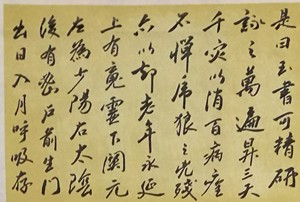 是曰玉書可精研
詠之萬遍昇三天
千灾以消百病痊
不憚虎狼之凶殘
亦以却老年永延
上有黄靈下關元
左為少陽右太陰
後有密戶前生門
出日入月呼吸存